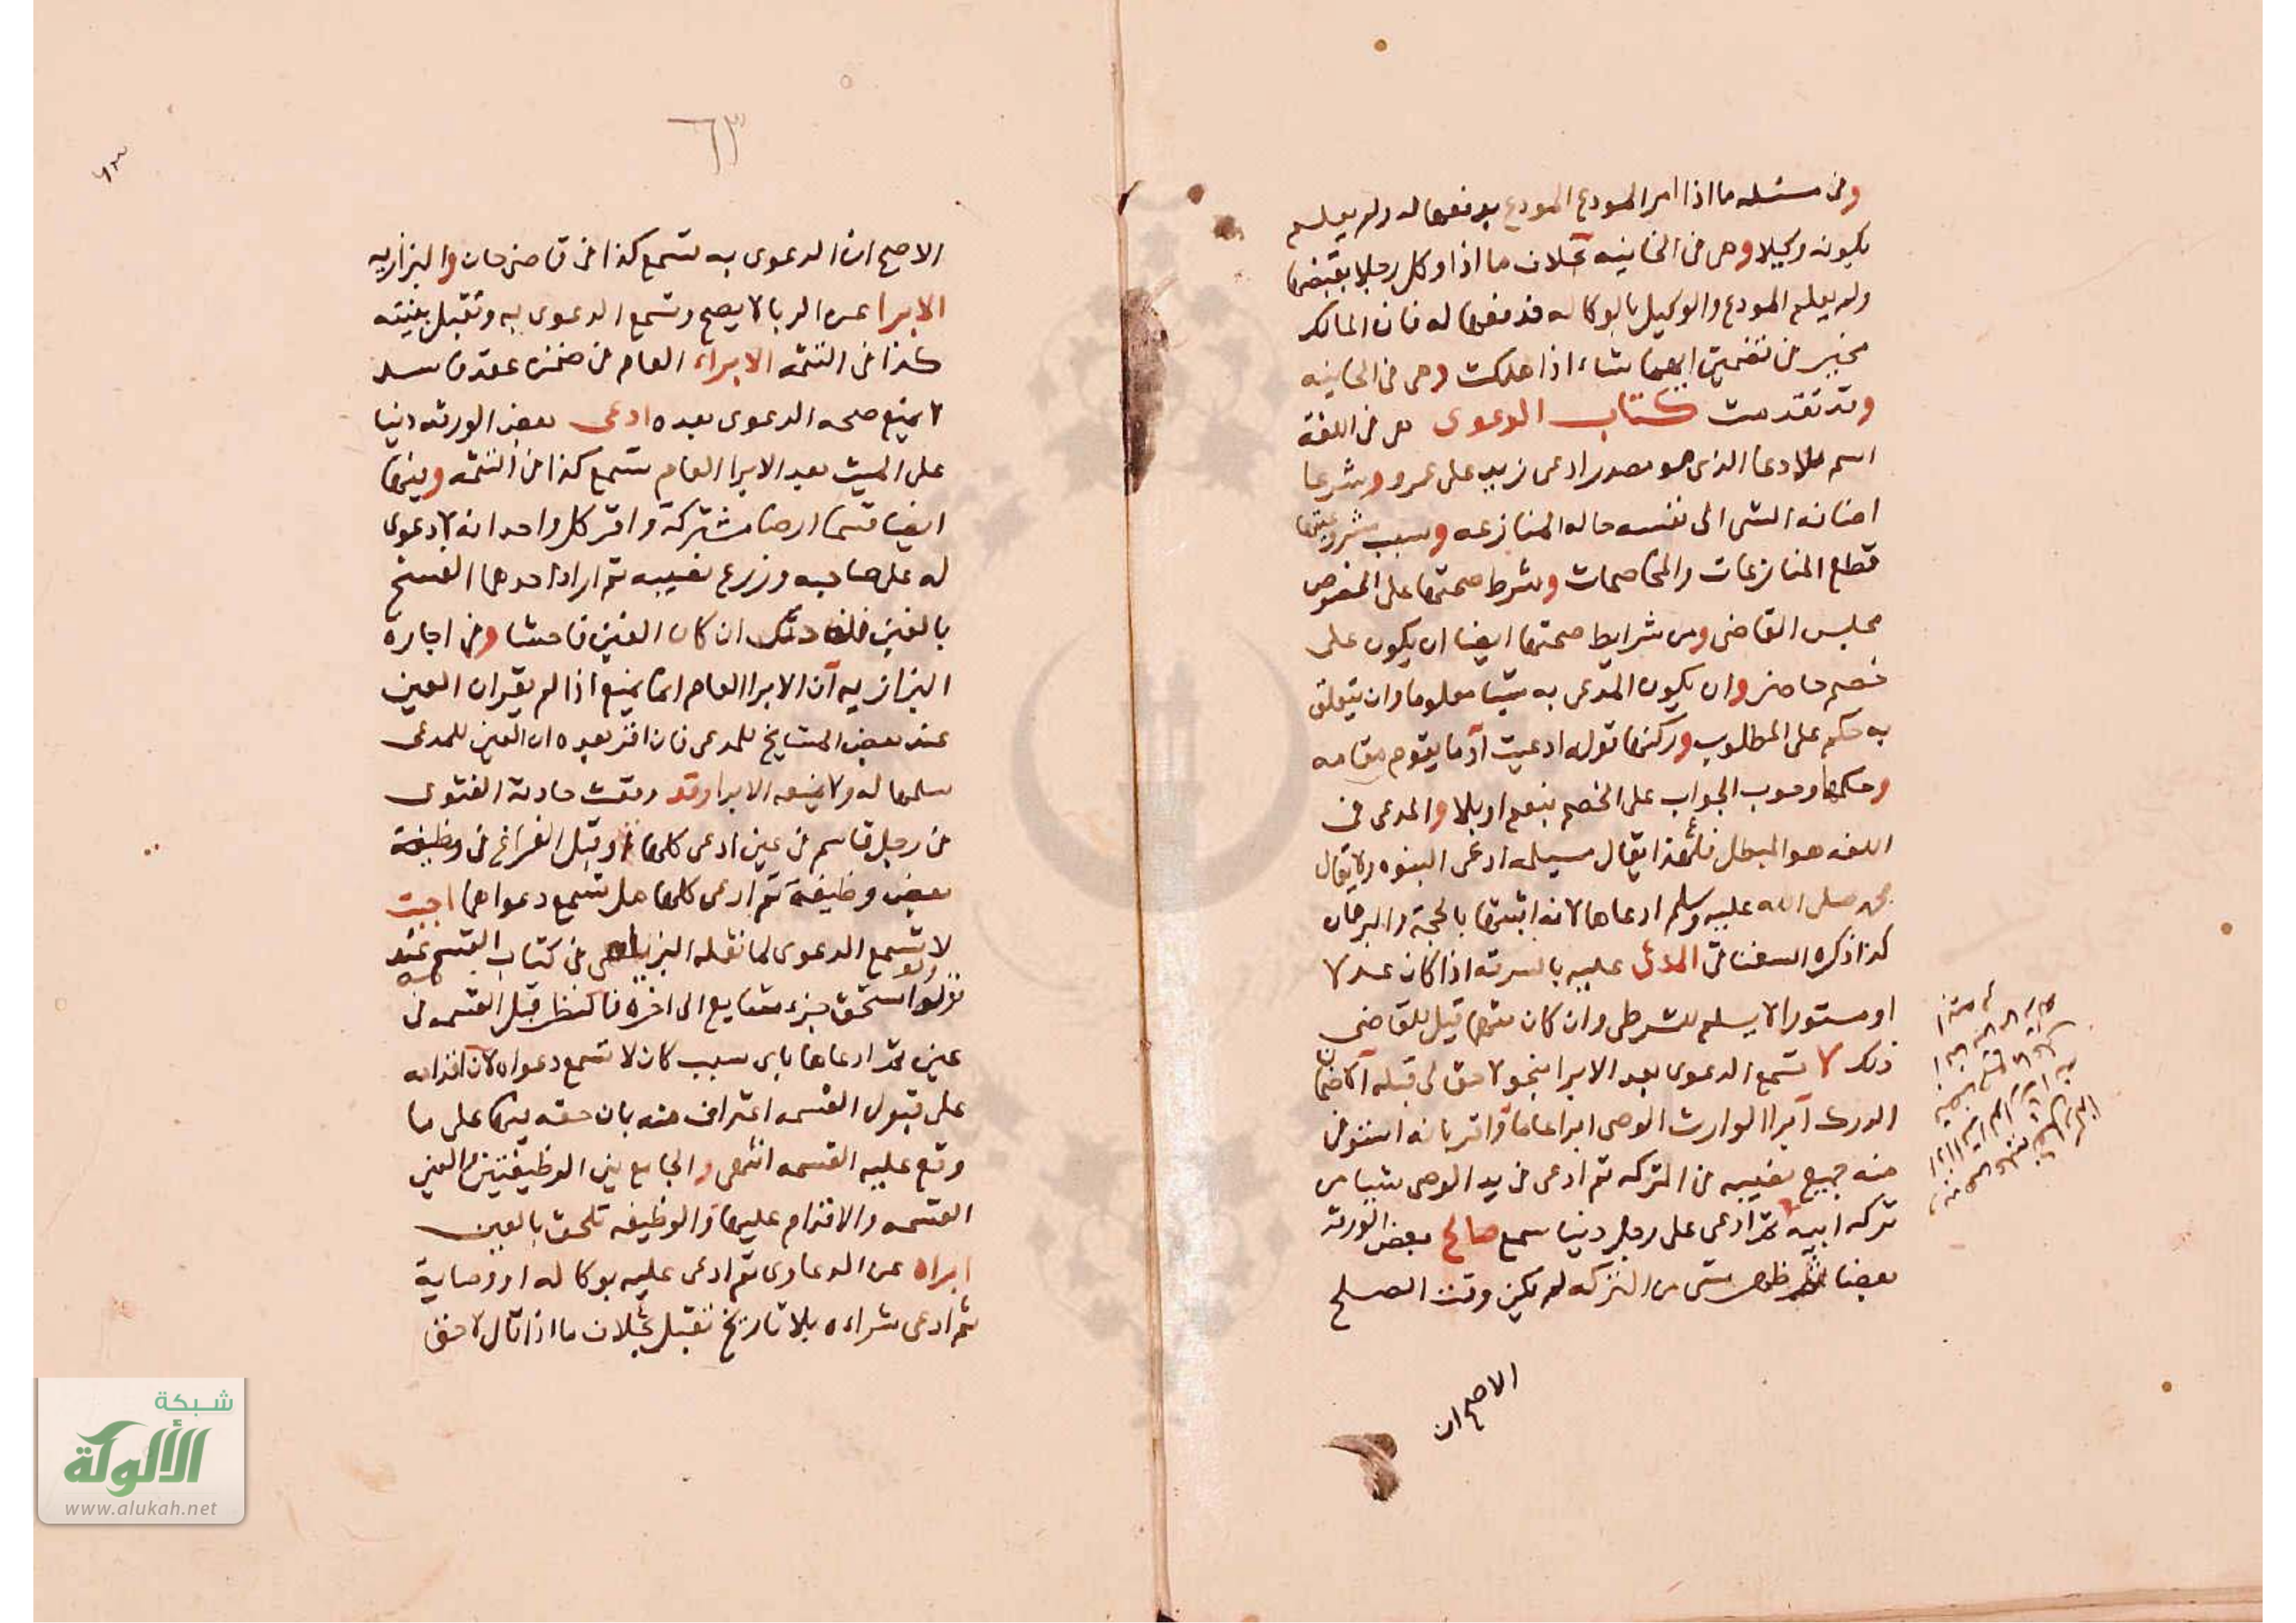 وفى مسئله ما اذا امر المودع المودع بدفعها له ولم يعلم
بكونه وكيلا وهى فى الخانيه بخلاف ما اذا وكل رجلا بقبضها
ولم يعلم المودع والوكيل بالوكاله فدفعها له فان المالك
مخير فى تضمين ايهما شاء اذا هلكت وهى فى الخانيه
وقد تقدمت كتاب الدعوى هى فى اللغة
اسم للادعا الذى هو مصدر ادعى زيد على عمرو وشرعا
اضافه الشى الى نفسه حاله المنازعه وسبب مشروعيتها
قطع المنازعات والمخاصمات وشرط صحتها على الخصوص
مجلس القاضى ومن شرايط صحتها ايضا ان يكون على
خصم حاضر وان يكون المدعى به شيا معلوما وان يتعلق
به حكم على المطلوب وركنها قوله ادعيت او ما يقوم مقامه
وحكمها وجوب الجواب على الخصم بنعم او بلا والمدعى فى
اللغه هو المبطل فلهذا يقال مسيلمه ادعى النبوه ولا يقال
محمد صلى الله عليه وسلم ادعاها لانه اثبتها بالحجة والبرهان
كذا ذكره السغناقى المدعى عليه بالسرقه اذا كان عدلا
او مستورا لا يسلم للشرطى وان كان متهما قيل للقاضى
ذلك لا تسمع الدعوى بعد الابرا بنحو لا حق لى قبله الا ضمان
الدرك ابرا الوارث الوصى ابرا عاما واقر بانه استوفى
منه جميع نصيبه من التركه ثم ادعى فى يد الوصى شيا من
تركه ابيه ثم ادعى على رجل دينا سمع صالح بعض الورثة
بعضا ثم ظهر شى من التركه لم يكن وقت الصلح
الاصح ان
٦٣
٦٣
الاصح ان الدعوى به تسمع كذا فى قاضى خان والبزازيه
الابرا عن الربا لا يصح وتسمع الدعوى به وتقبل بينته
كذا فى التتمه الابراء العام فى ضمن عقد فاسد
لا يمنع صحه الدعوى بعده ادعى بعض الورثه دينا
على الميت بعد الابرا العام تسمع كذا فى التتمه وفيها
ايضا قسما ارضا مشتركة واقر كل واحد انه لا دعوى
له على صاحبه وزرع نصيبه ثم اراد احدهما الفسخ
بالغبن فله ذلك ان كان الغبن فاحشا وفى اجارة
البزازيه ان الابرا العام انما يمنع اذا لم يقر ان العين
عند بعض المشايخ للمدعى فان اقر بعده ان العين للمدعى
سلمها له ولا يمنعه الابرا وقد وقعت حادثة الفتوى
فى رجل قاسم فى عين ادعى كلها او قبل الفراغ فى وظيفة
بعض وظيفة ثم ادعى كلها هل تسمع دعواهما اجبت
لا تسمع الدعوى لما نقله الزيلعى فى كتاب القسمه عند
قوله ولو استحق جزء شايع الى اخره فالنظر قبل القسمه فى
عين ثم ادعاها باى سبب كان لا تسمع دعواه لان اقدامه
على قبول القسمه اعتراف منه بان حقه فيها على ما
وقع عليه القسمه انتهى والجامع بين الوظيفتين والعين
القسمه والاقدام عليها والوظيفه تلحق بالعين
ابراه عن الدعاوى ثم ادعى عليه بوكاله او وصاية
ثم ادعى شراءه بلا تاريخ تقبل بخلاف ما اذا قال لا حق
شبكة
الألوكة
www.alukah.net